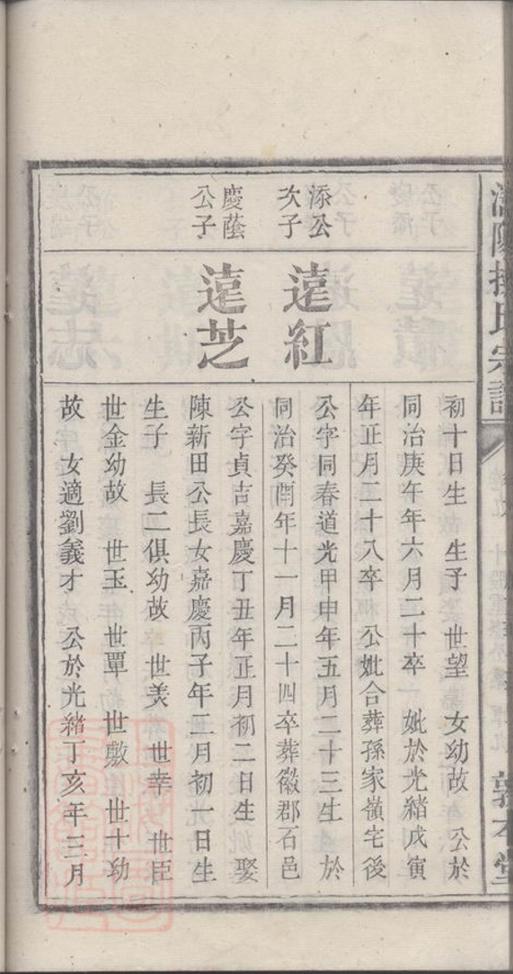 氏宗譜
初十日生 生子 世望 女幼故 公於
同治庚午年六月二十卒 妣於光緒戊寅
年正月二十八卒 公妣合葬孫家嶺宅後
添公
次子
遠紅
公字同春道光甲申年五月二十三生 於
同治癸酉年十一月二十四卒葬徽郡石邑
慶蔭
公子
遠芝
公字貞吉嘉慶丁丑年正月初二日生 娶
陳新田公長女嘉慶丙子年二月初一日生
生子 長二俱幼故 世美 世幸 世臣
世金幼故 世玉 世覃 世敷 世十幼
故 女適劉義才 公於光緒丁亥年三月